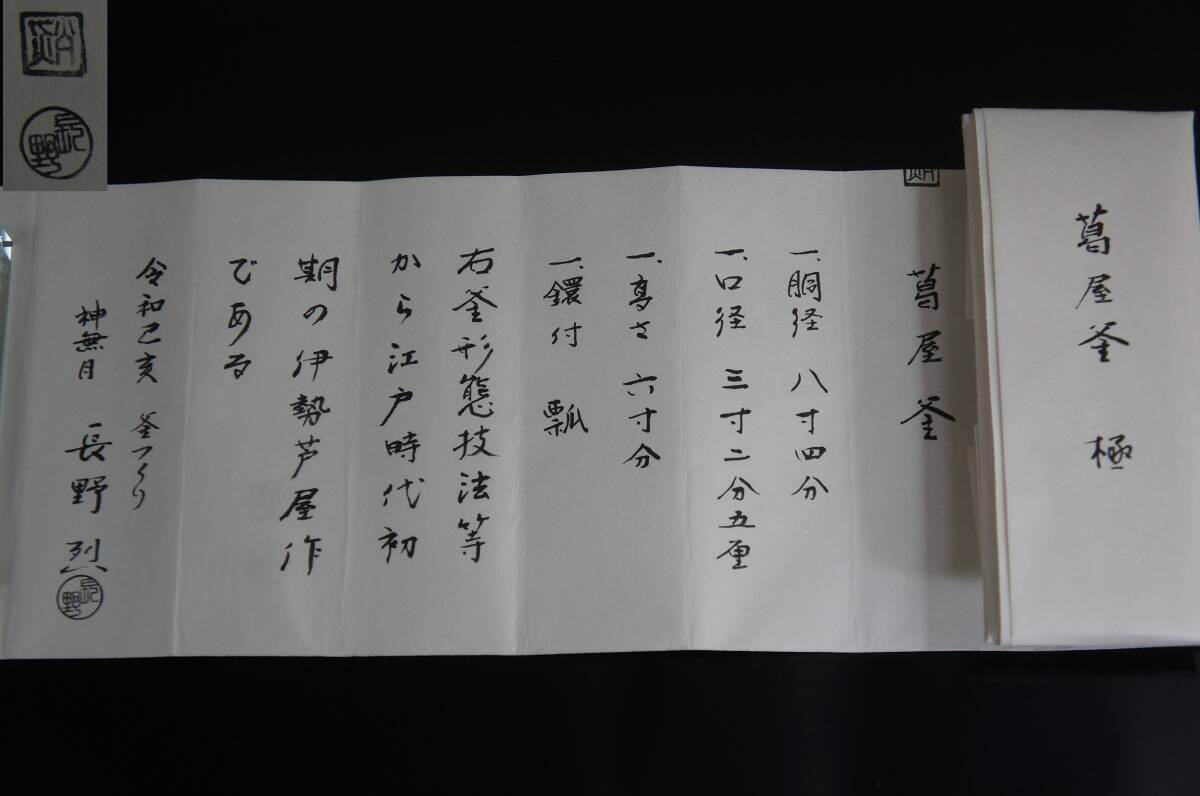 葛屋釜 極
葛屋釜
一、胴径 八寸四分
一、口径 三寸二分五厘
一、高さ 六寸分
一、鐶付 瓢
右釜形態技法等
から江戸時代初
期の伊勢芦屋作
である
令和己亥 釜つくり
神無月 長野 烈
長野
長野